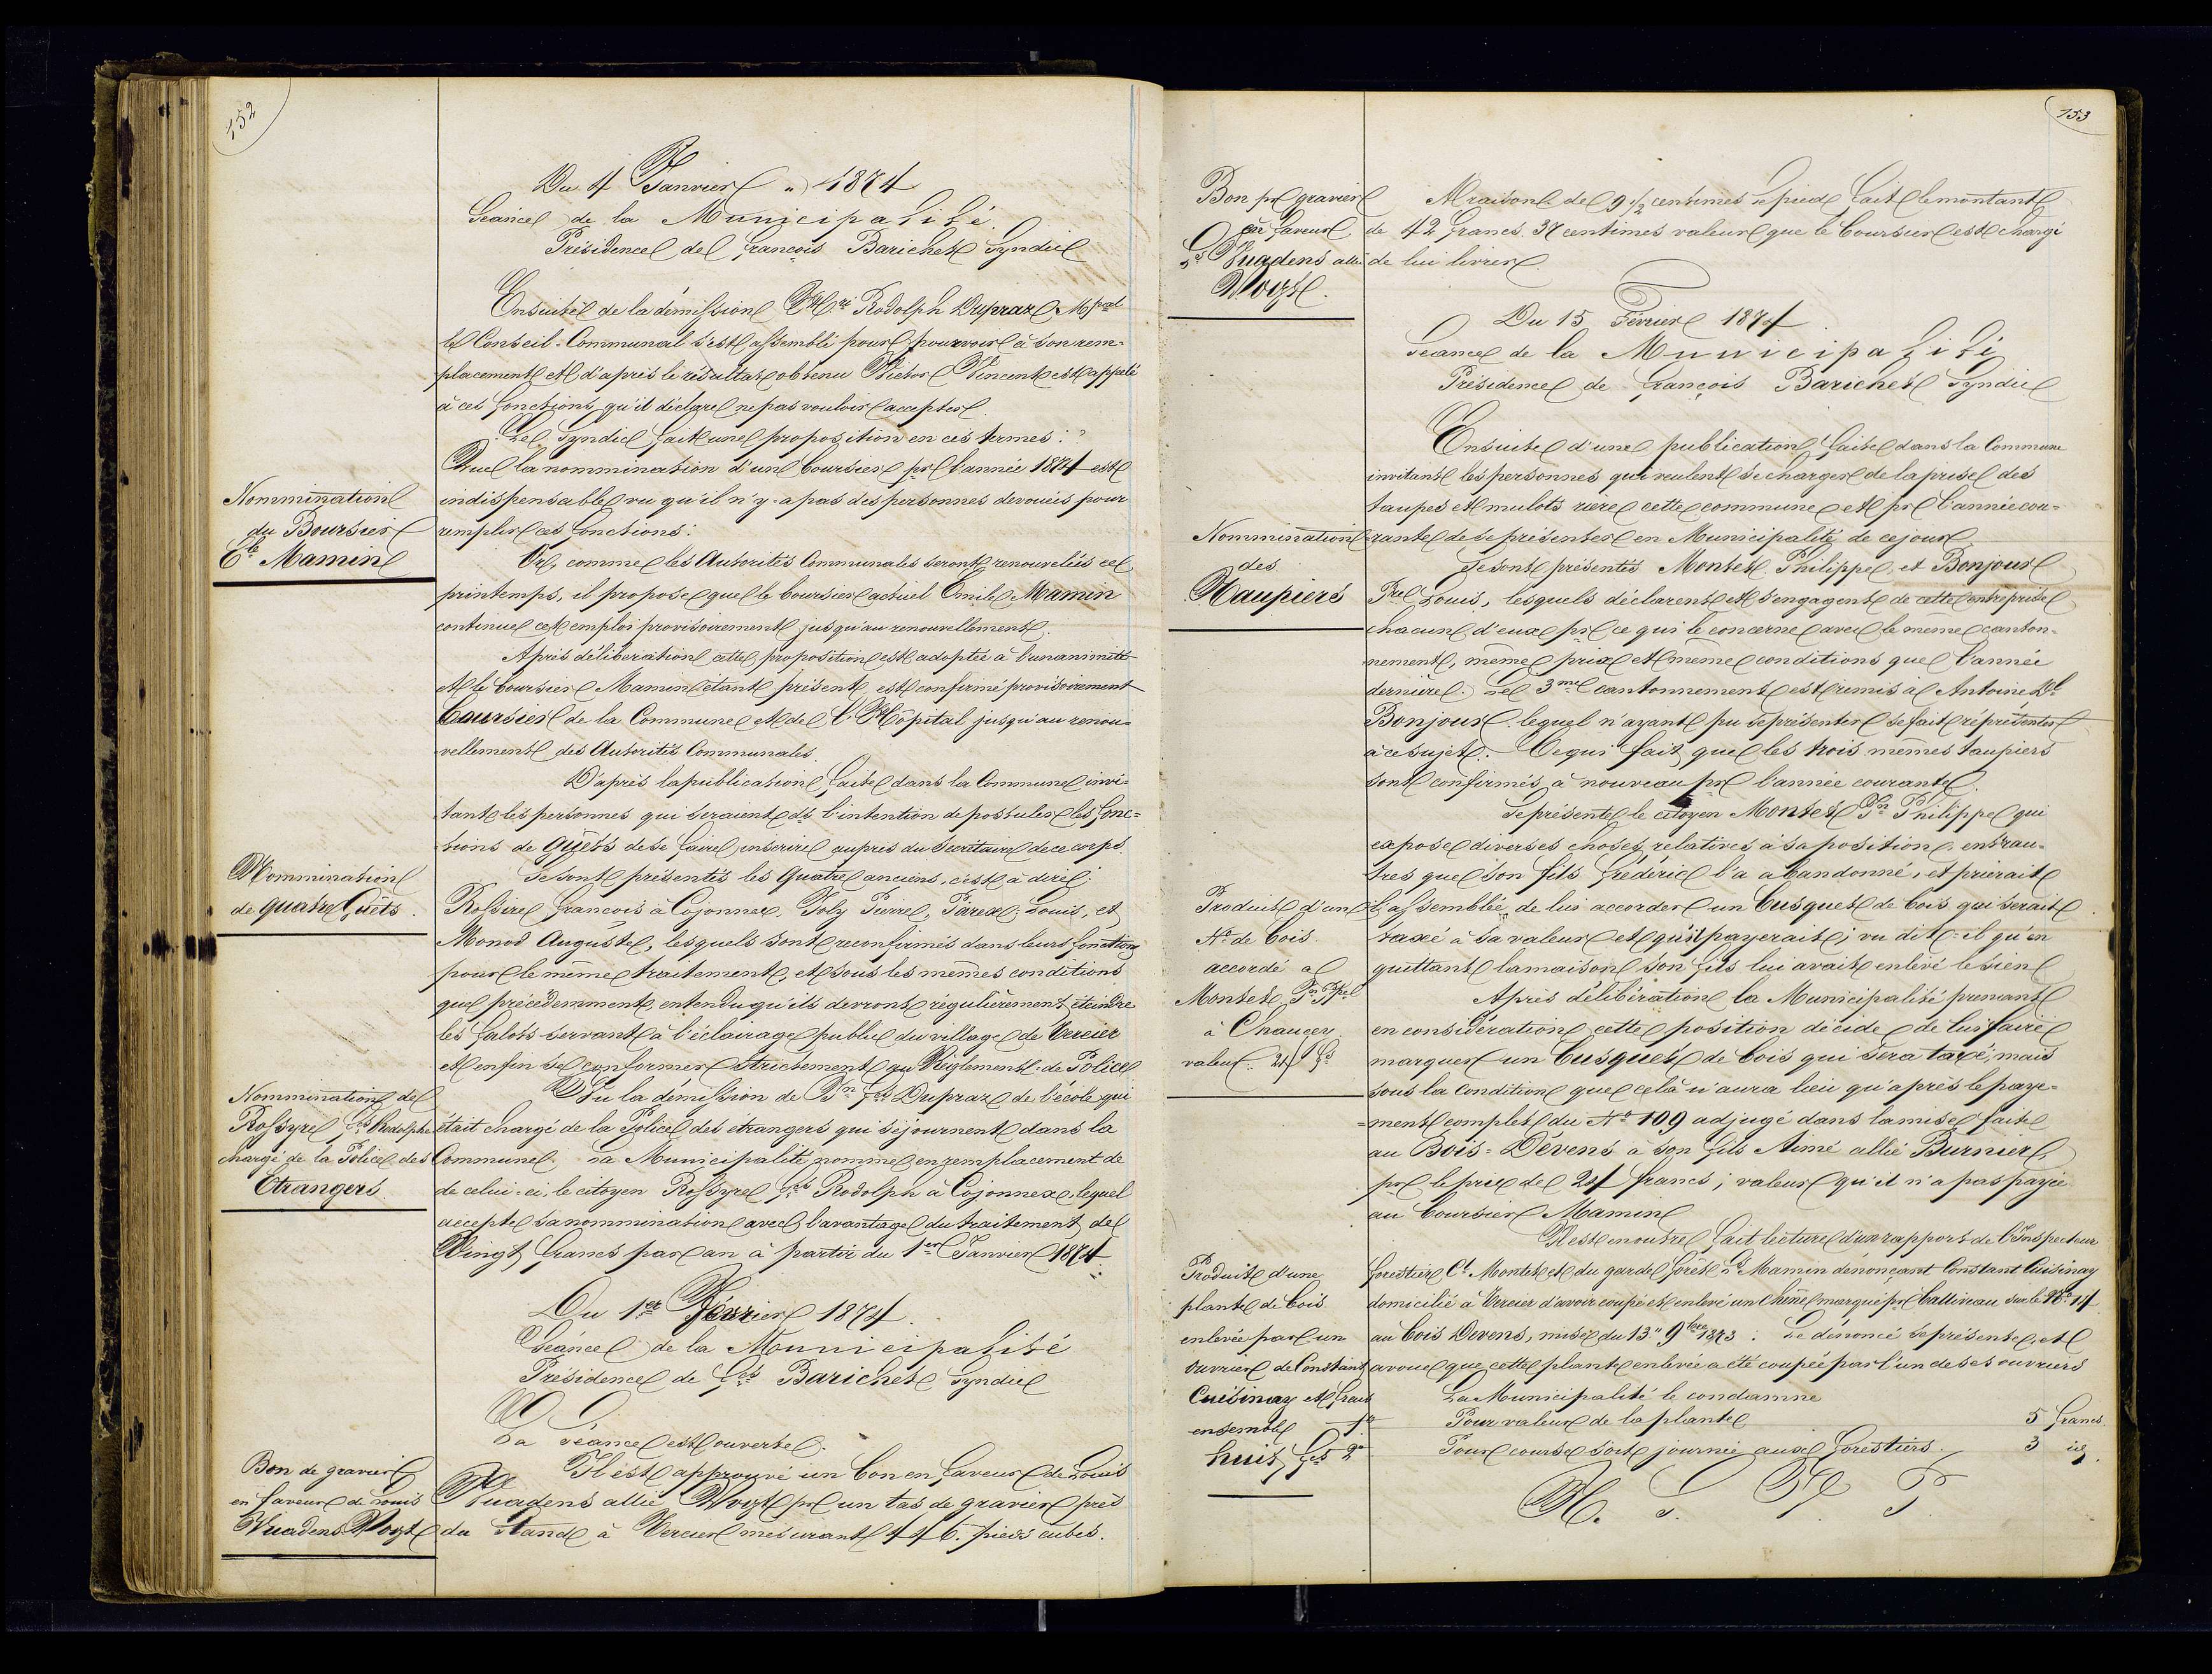 152
Du 4 Janvier " 1874
Séance de la Municipalité
Présidence de François Barichet Syndic
Ensuite de la démission Rodolph Dupraz Mpal
le Conseil Communal s'est assemblé pour pourvoir à son rem-
placement et d'après le résultat obtenu Victor Vincent est appelé
à ces fonctions qu'il déclare ne pas vouloir accepter.
Le Syndic fait une proposition en ces termes :
Que la nommination d'un boursier pr l'année 1874 est
Nommination
du Boursier
Ele Mamin
indispensable vu qu'il n'y a pas des personnes dévouées pour
remplir ces fonctions :
Or, comme les Autorités Communales seront renouvelées ce
printemps, il propose que le boursier actuel Emile Mamin
continue cet emploi provisoirement jusqu'au renouvellement.
Après déliberation cette proposition est adoptée à l'unanimité
et le boursier Mamin étant présent est confirmé provisoirement
Boursier de la Commune et de l'Hôpital jusqu'au renou-
vellement des Autorités Communales.
D'après la publication faite dans la Commune invi-
tant les personnes qui seraient ds l'intention de postuler les fonc-
tions de Guets de se faire inscrire auprès du Secrétaire de ce corps
Nommination
de quatre Guêts.
Se sont présentés les quatre anciens, c'est à dire :
Rossire François à Cojonnex, Joly Pierre, Parex Louis, et
Monod Auguste, lesquels sont reconfirmés dans leurs fonctions
pour le même traitement, et sous les mêmes conditions
que précédemment, entendu qu'ils devront régulièrement éteindre
les falots servant à l'éclairage public du village de Vercier
et enfin se conformer strictement au Règlement de Police
Nommination de
Rossyre Fçs Rodolphe
chargé de la Police des
Etrangers
Vu la démission de Bn Fçs Dupraz de l'école qui
était chargé de la Police des étrangers qui séjournent dans la
Commune. La Municipalité nomme en remplacement de
de celui-ci, le citoyen Rossyre Fçs Rodolph à Cojonnex, lequel
accepte sa nommination avec l'avantage du traitement de
Vingt francs par an à partir du 1er Janvier 1874
Du 1er Février 1874.
Séance de la Municipalité
Présidence de Fçs Barichet Syndic
La séance est ouverte.
Bon de gravier
en faveur de Louis
Vuadens Voigt
Il est approuvé un bon en faveur de Louis
Vuadens allié Voigt pr un tas de gravier près
du Stand à Vercier mesurant 446. pieds cubes.
153
Bon pr gravier
en faveur
Ls Vuadens allié
Voigt.
A raison de 9 1/2 centimes le pied fait le montant
de 42 francs 37 centimes valeur que le boursier est chargé
de lui livrer.
Du 15 Février 1874.
Séance de la Municipalité
Présidence de François Barichet Syndic
Ensuite d'une publication faite dans la Commune
invitant les personnes qui veulent se charger de la prise des
taupes et mulots rière cette commune et pr l'année cou-
Nommination
des
Taupiers
rante de se présenter en Municipalité de ce jour
Se sont présentés Montet Philippe, et Bonjour
Pre Louis, lesquels déclarent et s'engagent de cette entreprise
chacun d'eux pr ce qui le concerne avec le même canton-
nement, même prix et même conditions que l'année
dernière. Le 3me cantonnement est remis à Antoine Dl
Bonjour. lequel n'ayant pu se présenter se fait réprésenter
à ce sujet. Ce qui fait que les trois mêmes taupiers
sont confirmés à nouveau pr l'année courante.
Se présente le citoyen Montet Jn Philippe qui
expose diverses choses relatives à sa position. entr'au-
tres que son fils Frédéric l'a abandonné, et prierait
Produit d'un
No de bois
accordé à
Montet Jn Ppe
à Chaucey
valeur. 24 fs
l'assemblée de lui accorder un busquet de bois qui serait
taxé à sa valeur et qu'il payerait ; vu dit-il qu'en
quittant la maison son fils lui avait enlevé le sien
Après délibération la Municipalité prenant
en considération cette position décide de lui faire
marquer un busquet de bois qui sera taxé, mais
sous la condition que celà n'aura lieu qu'après le paye-
ment complet du No 109 adjugé dans la mise faite
au Bois-Dévens à son fils Aimé allié Burnier,
pr le prix de 24 francs ; valeur qu'il n'a pas payée
au boursier Mamin
Il est en outre fait lecture d'un rapport de l'Inspecteur
Produit d'une
plante de bois
enlevée par un
ouvrier de Constant
Cuisinay et frais
ensemble
huit fcs
forestier Ct Montet et du garde forêt Ls Mamin dénonçant Constant Cuisinay
domicilié à Vercier d'avoir coupé et enlevé un chêne marqué pr balliveau sur le No 14
au bois Devens, mise du 13" 9bre 1873. Le dénoncé se présente, et
avoue que cette plante enlevée a été coupée par l'un de ses ouvriers
La Municipalité le condamne
1o Pour valeur de la plante 5 francs
2o Pour course soit journée aux forestiers. 3 id